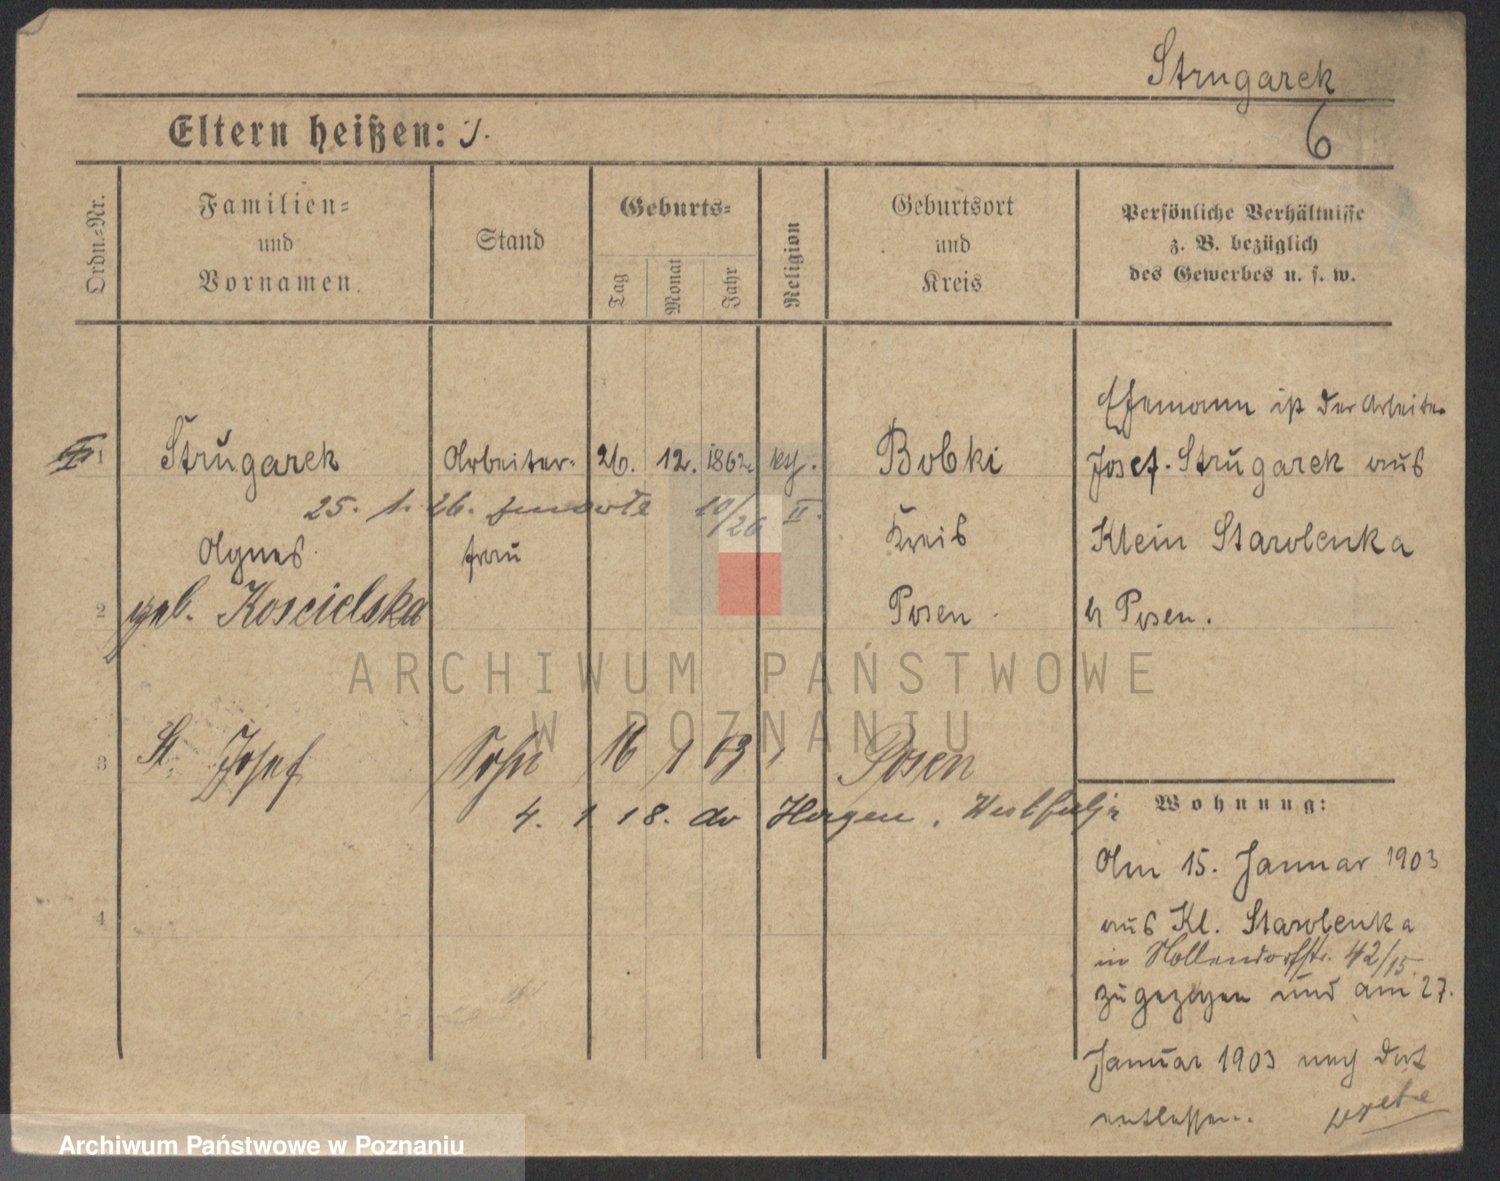 Strugarek
6
Eltern heißen:
Ordn.-Nr.
Familien-
und
Vornamen.
Stand
Geburts-
Tag
Monat
Jahr
Religion
Geburtsort
und
Kreis
Persönliche Verhältnisse
z. B. bezüglich
des Gewerbes u. s. w.
1
Strugarek
Arbeiter-
26. 12. 1862. kth.
Bobki
Ehemann ist der Arbeiter
Josef Strugarek aus
25. 1. 26. 10/26 II.
Agnes
frau
Kreis
Klein Starolenka
2
geb. Koscielska
Posen
b Posen.
ARCHIWUM PAŃSTWOWE
W POZNANIU
3
St. Josef
Sohn
16 1 03
Posen
4. 1. 18. Hagen, Westfalen
Wohnung:
Am 15. Januar 1903
aus Kl. Starolenka
in Hollendorfstr. 42/15.
zugezogen und am 27.
Januar 1903 nach dort
entlassen.
4
Archiwum Państwowe w Poznaniu